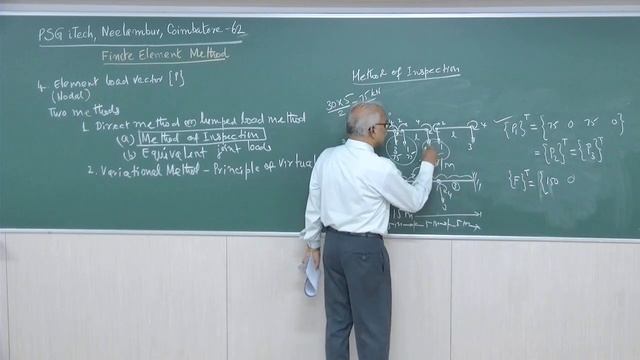 PSG iTech, Neelambur, Coimbatore-62
Finite Element Method
4. Element Load vector {P}
(Nodal)
Two methods
1. Direct method or lumped load method
(a) Method of Inspection
(b) Equivalent joint loads
2. Variational Method - Principle of Virtual
Method of Inspection
30x5/2 = 75 kN
{P1}^T = {75 0 75 0}
= {P2}^T = {P3}^T
{F}^T = {150 0
15m